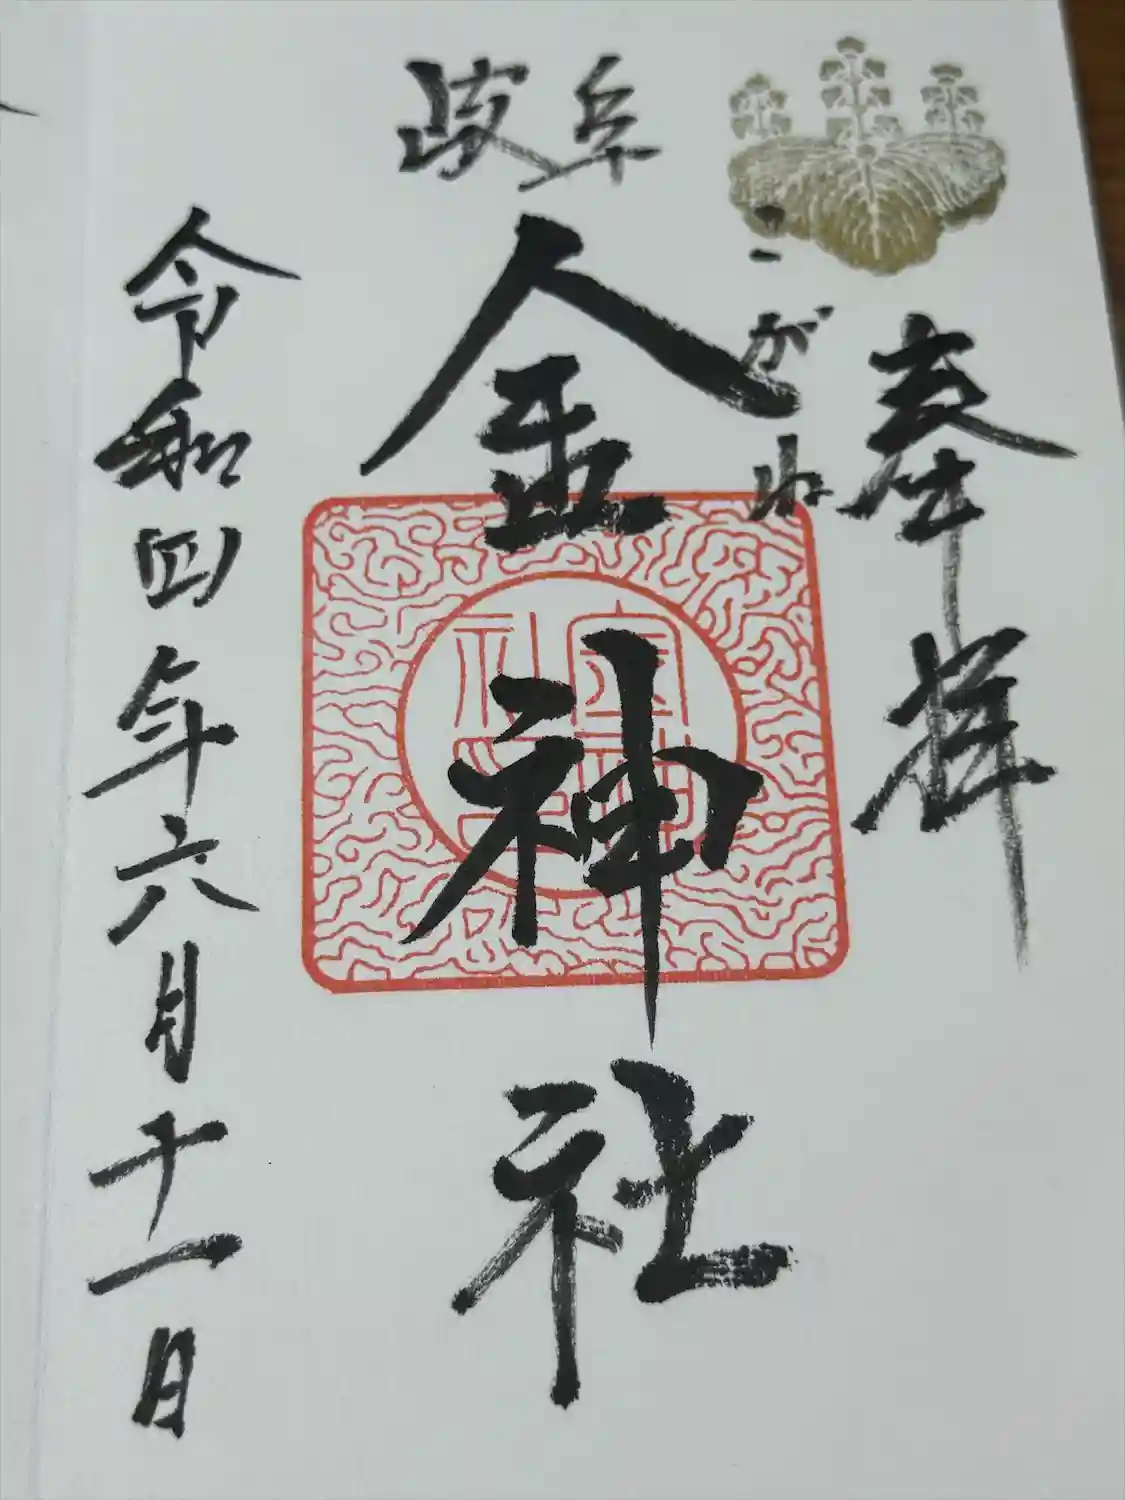 奉拝
こがね
岐阜
金神社
令和四年六月十一日